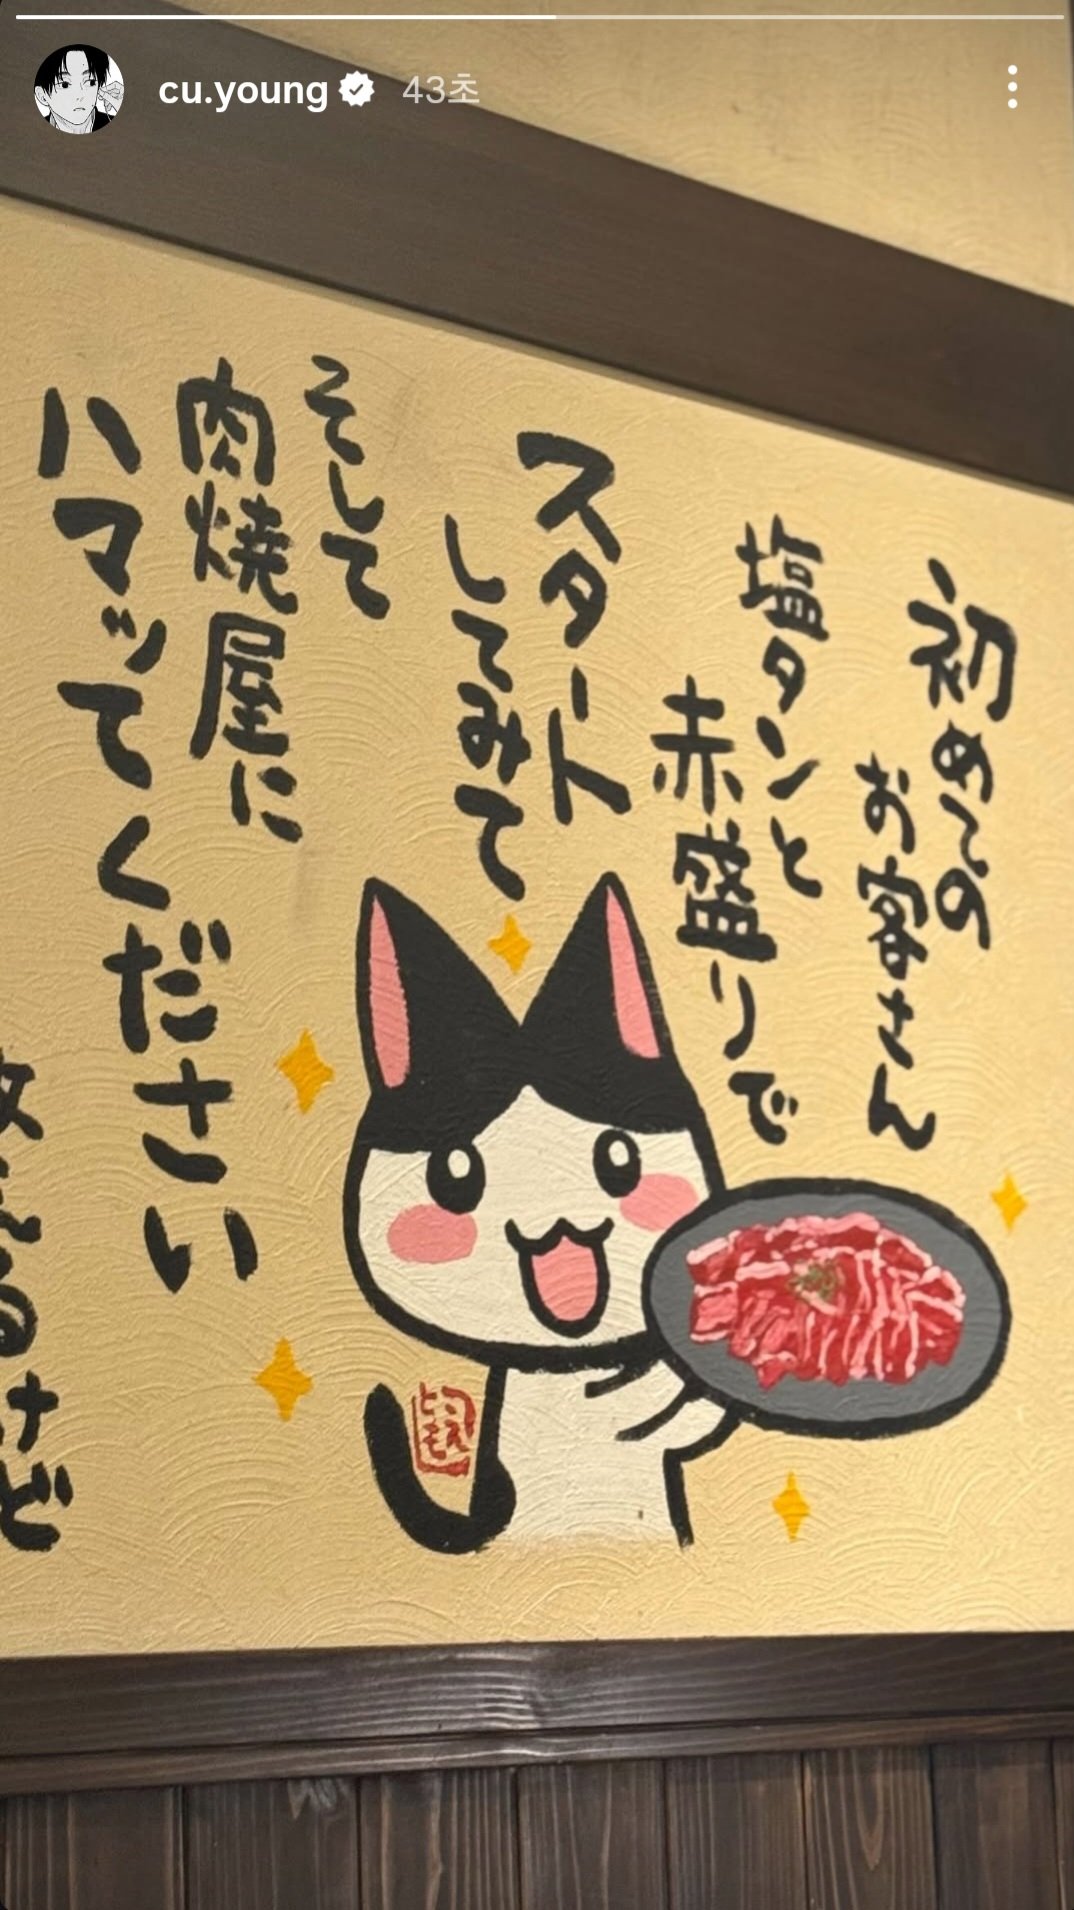 cu.young 43초
初めての
お客さん
塩タンと
赤盛りで
スタート
してみて
そして
肉焼屋に
ハマッてください